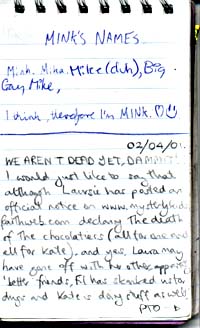 MINK'S NAMES
Mink, Mika, Mike (duh), Big
Gay Mike,
I think, therefore I'm MINK.
02/04/01.
WE AREN'T DEAD YET, DAMMIT!
I would just like to say that
although Laurie has posted an
official notice on www.
faithweb.com declaring the death
of the chocolatiers (all for one and
all for Kate), and yes, Laura may
have gone off with her other, apparently
'better' friends, Fi has skanked us for
drugs and Kate is day stuff as well,
PTO